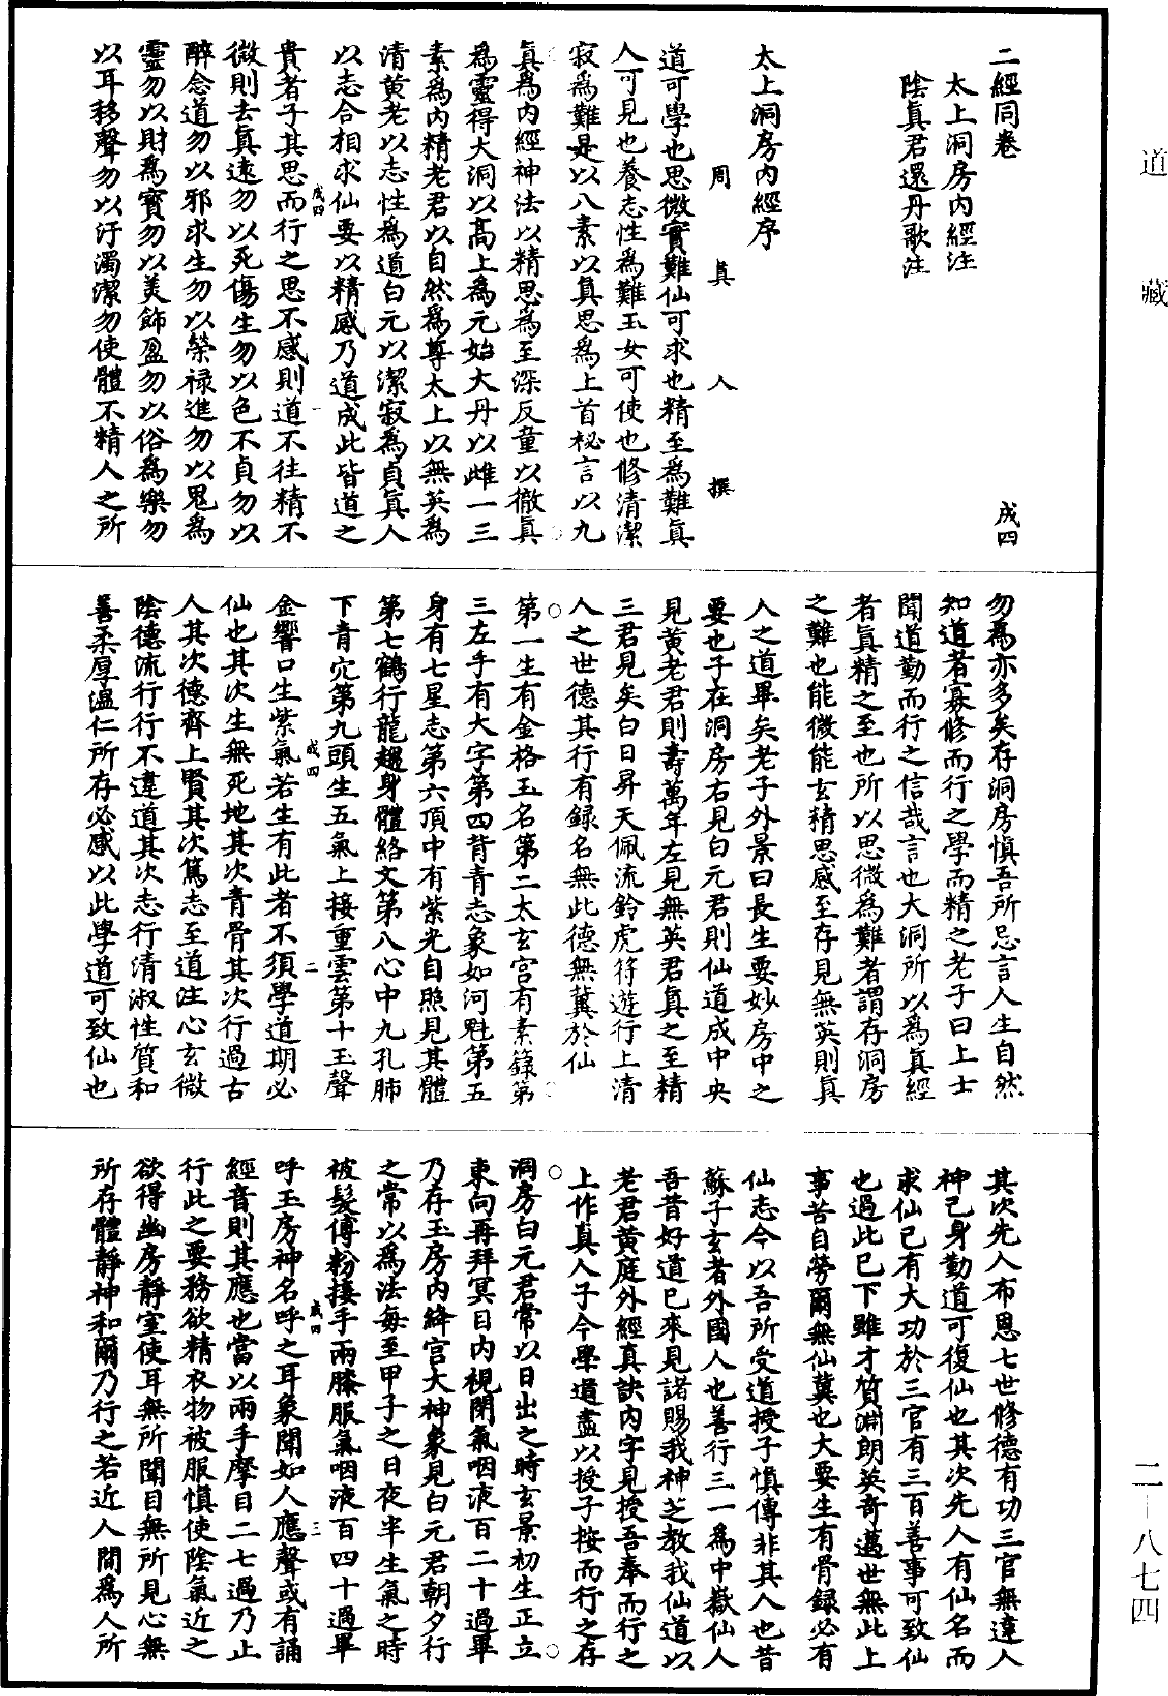 道藏
二經同卷
成四
太上洞房内經注
陰真君還丹歌注
太上洞房内經序
周真人撰
道可學也思微實難仙可求也精至為難真
人可見也養志性為難玉女可使也修清潔
寂為難是以八素以真思為上首秘言以九
真為内經神法以精思為至深反童以徹真
為靈得大洞以高上為元始大丹以雌一三
素為内精老君以自然為尊太上以無英為
清黄老以志性為道白元以潔寂為貞真人
以志合相求仙要以精感乃道成此皆道之
成四 一
貴者子其思而行之思不感則道不往精不
微則去真遠勿以死傷生勿以色不貞勿以
醉念道勿以邪求生勿以榮祿進勿以鬼為
靈勿以財為寶勿以美飾盈勿以俗為樂勿
以耳移聲勿以汙濁潔勿使體不精人之所
勿為亦多矣存洞房慎吾所忌言人生自然
知道者寡修而行之學而精之老子曰上士
聞道勤而行之信哉言也大洞所以為真經
者真精之至也所以思微為難者謂存洞房
之難也能微能玄精思感至存見無英則真
人之道畢矣老子外景曰長生要妙房中之
要也子在洞房右見白元君則仙道成中央
見黄老君則壽萬年左見無英君真之至精
三君見矣白日昇天佩流鈴虎符遊行上清
人之世德其行有録名無此德無冀於仙
第一生有金格玉名第二太玄宫有素籙第
三左手有大字第四背青志象如河魁第五
身有七星志第六頂中有紫光自照見其體
第七鶴行龍趨身體絡文第八心中九孔肺
下青穴第九頭生五氣上接重雲第十玉聲
成四 二
金響口生紫氣若生有此者不須學道期必
仙也其次生無死地其次青骨其次行過古
人其次德齊上賢其次篤志至道注心玄微
陰德流行行不違道其次志行清淑性質和
善柔厚溫仁所存必感以此學道可致仙也
其次先人布恩七世修德有功三官無違人
神己身勤道可復仙也其次先人有仙名而
求仙已有大功於三官有三百善事可致仙
也過此已下雖才質淵朗英奇邁世無此上
事苦自勞爾無仙冀也大要生有骨録必有
仙志今以吾所受道授子慎傳非其人也昔
蘇子玄者外國人也善行三一為中嶽仙人
吾昔好道已來見諸賜我神芝教我仙道以
老君黄庭外經真訣内字見授吾奉而行之
上作真人子今學道盡以授子按而行之存
洞房白元君常以日出之時玄景初生正立
東向再拜冥目内視閉氣咽液百二十過畢
乃存玉房内絳宫大神象見白元君朝夕行
之常以為法每至甲子之日夜半生氣之時
被髮傅粉接手兩膝服氣咽液百四十過畢
成四 三
呼玉房神名呼之耳象聞如人應聲或有誦
經音則其應也當以兩手摩目二七過乃止
行此之要務欲精衣物被服慎使陰氣近之
欲得幽房靜室使耳無所聞目無所見心無
所存體靜神和爾乃行之若近人間為人所
二—八七四